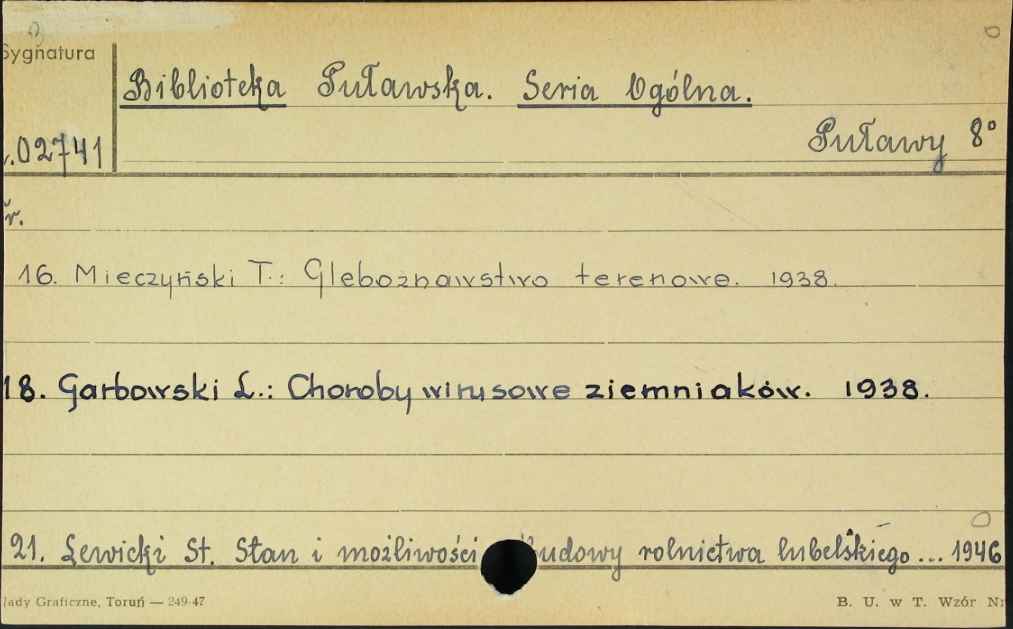 Sygnatura
Biblioteka Puławska. Seria Ogólna.
02741
Puławy 8°
nr.
16. Mieczyński T.: Gleboznawstwo terenowe. 1938.
18. Garbowski L.: Choroby wirusowe ziemniaków. 1938.
21. Lewicki St. Stan i możliwości budowy rolnictwa lubelskiego ... 1946
łady Graficzne, Toruń — 249-47
B. U. w T. Wzór Nr